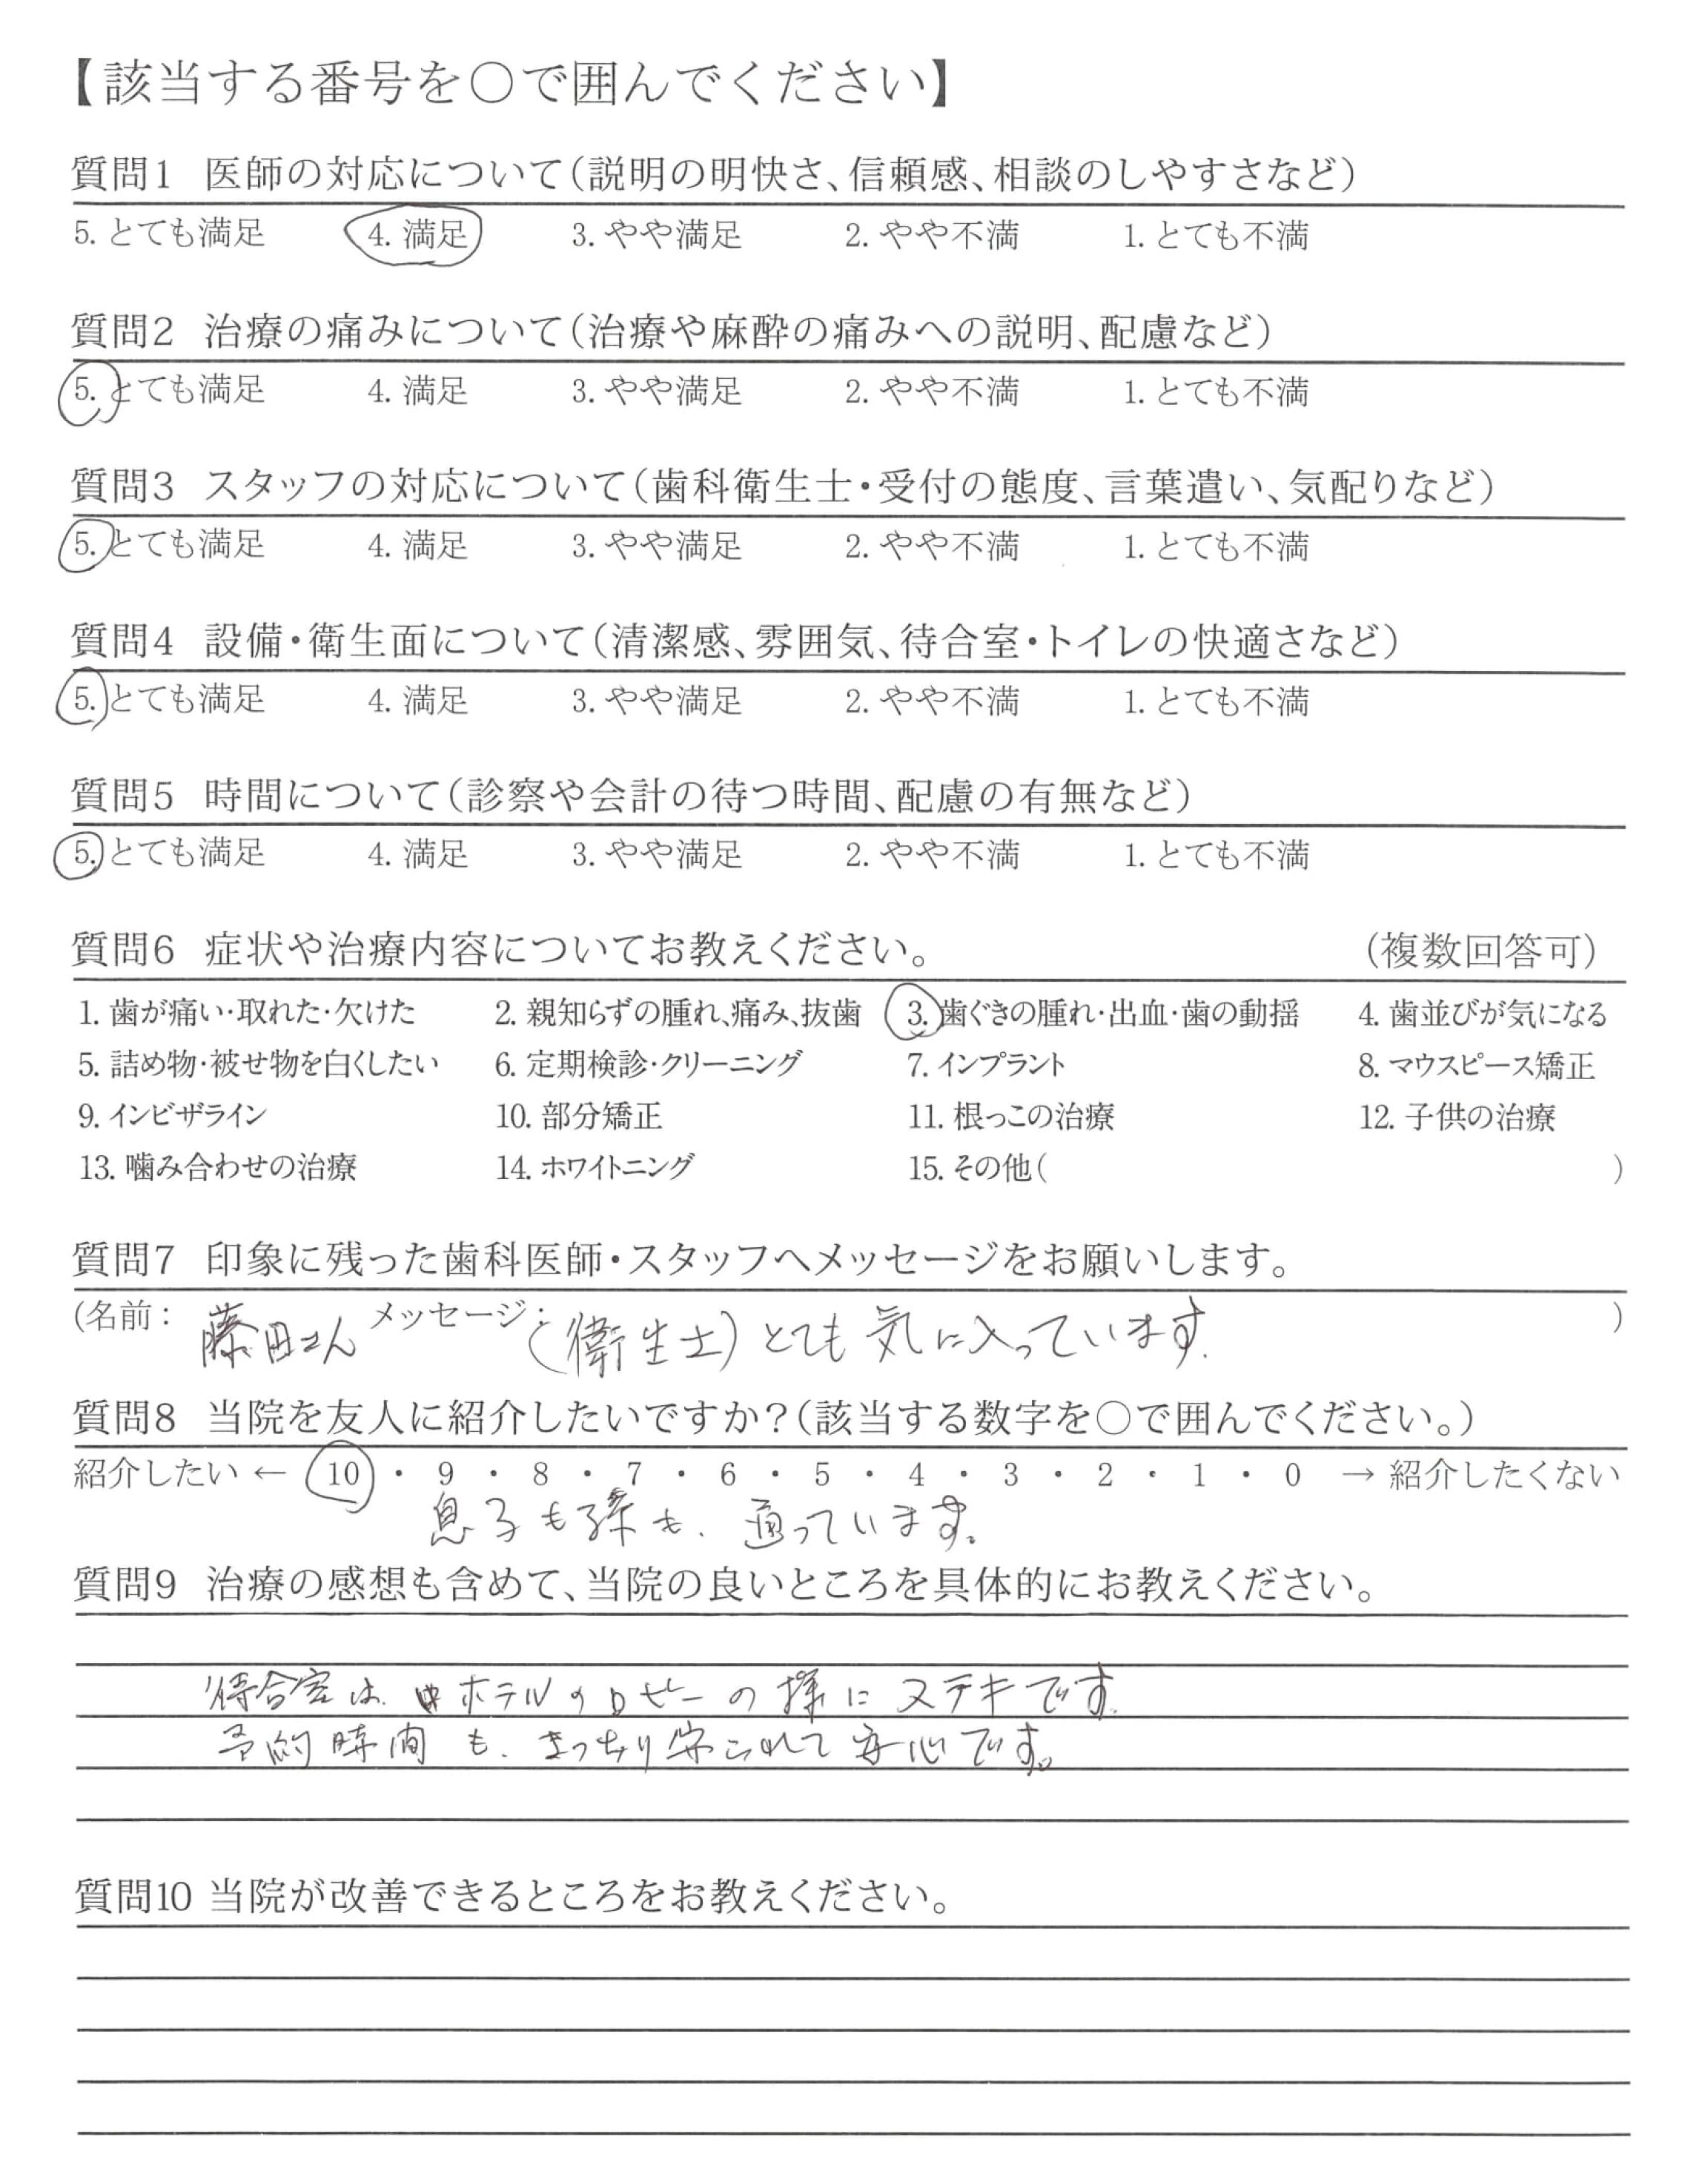 【該当する番号を○で囲んでください】
質問1 医師の対応について(説明の明快さ、信頼感、相談のしやすさなど)
5. とても満足 4. 満足 3. やや満足 2. やや不満 1. とても不満
質問2 治療の痛みについて(治療や麻酔の痛みへの説明、配慮など)
5. とても満足 4. 満足 3. やや満足 2. やや不満 1. とても不満
質問3 スタッフの対応について(歯科衛生士・受付の態度、言葉遣い、気配りなど)
5. とても満足 4. 満足 3. やや満足 2. やや不満 1. とても不満
質問4 設備・衛生面について(清潔感、雰囲気、待合室・トイレの快適さなど)
5. とても満足 4. 満足 3. やや満足 2. やや不満 1. とても不満
質問5 時間について(診察や会計の待つ時間、配慮の有無など)
5. とても満足 4. 満足 3. やや満足 2. やや不満 1. とても不満
質問6 症状や治療内容についてお教えください。 (複数回答可)
1. 歯が痛い・取れた・欠けた 2. 親知らずの腫れ、痛み、抜歯 3. 歯ぐきの腫れ・出血・歯の動揺 4. 歯並びが気になる
5. 詰め物・被せ物を白くしたい 6. 定期検診・クリーニング 7. インプラント 8. マウスピース矯正
9. インビザライン 10. 部分矯正 11. 根っこの治療 12. 子供の治療
13. 噛み合わせの治療 14. ホワイトニング 15. その他( )
質問7 印象に残った歯科医師・スタッフへメッセージをお願いします。
(名前: 藤田さん メッセージ: (衛生士) とても気に入っています。 )
質問8 当院を友人に紹介したいですか?(該当する数字を○で囲んでください。)
紹介したい ← 10 ・ 9 ・ 8 ・ 7 ・ 6 ・ 5 ・ 4 ・ 3 ・ 2 ・ 1 ・ 0 → 紹介したくない
息子も孫も、通っています。
質問9 治療の感想も含めて、当院の良いところを具体的にお教えください。
待合室は、ホテルのロビーの様にステキです。
予約時間も、きっちり守られて安心です。
質問10 当院が改善できるところをお教えください。